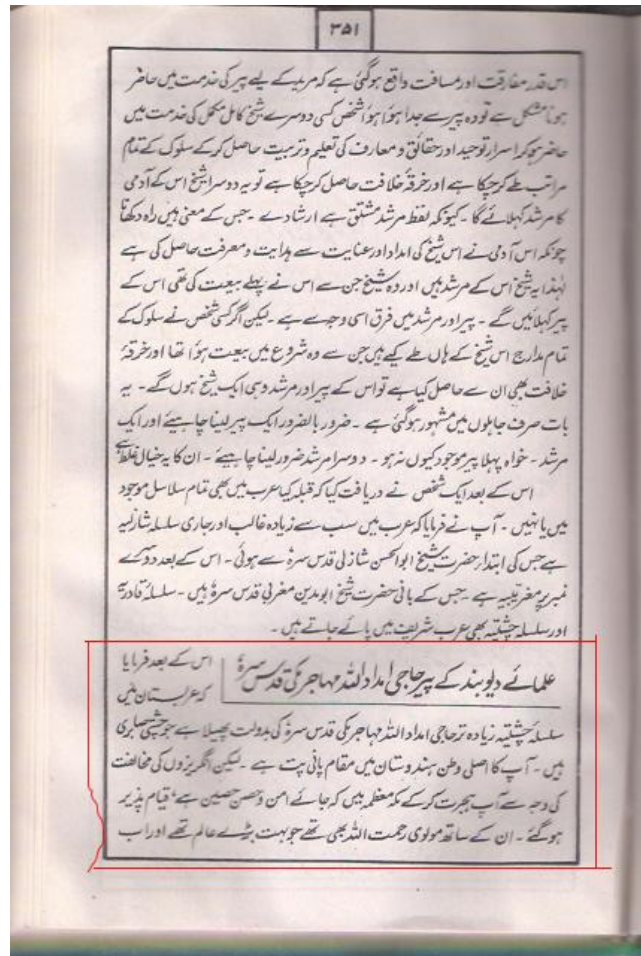 ۳۵۱
اس قدر مفارقت اور مسافت واقع ہوگئی ہے کہ مرید کے لیے پیر کی خدمت میں حاضر
ہونا مشکل ہے تو وہ پیر سے جدا ہوا ہوا شخص کسی دوسرے شیخ کامل مکمل کی خدمت میں
حاضر ہو کر اسرار توحید اور حقائق و معارف کی تعلیم و تربیت حاصل کر کے سلوک کے تمام
مراتب طے کر چکا ہے اور خرقۂ خلافت حاصل کر چکا ہے تو یہ دوسرا شیخ اس کے آدمی
کا مرشد کہلائے گا ۔ کیونکہ لفظ مرشد مشتق ہے ارشاد سے ۔ جس کے معنی ہیں راہ دکھانا
چونکہ اس آدمی نے اس شیخ کی امداد اور عنایت سے ہدایت و معرفت حاصل کی ہے
لہٰذا یہ شیخ اس کے مرشد ہیں اور وہ شیخ جن سے اس نے پہلے بیعت کی تھی اس کے
پیر کہلائیں گے ۔ پیر اور مرشد میں فرق اسی وجہ سے ہے ۔ لیکن اگر کسی شخص نے سلوک کے
تمام مدارج اس شیخ کے ہاں طے کیے ہیں جن سے وہ شروع میں بیعت ہوا تھا اور خرقۂ
خلافت بھی ان سے حاصل کیا ہے تو اس کے پیر اور مرشد وہی ایک شیخ ہوں گے ۔ یہ
بات صرف جاہلوں میں مشہور ہوگئی ہے ۔ ضرور بالضرور ایک پیر لینا چاہیئے اور ایک
مرشد ۔ خواہ پہلا پیر موجود کیوں نہ ہو ۔ دوسرا مرشد ضرور لینا چاہیئے ۔ ان کا یہ خیال غلط ہے
اس کے بعد ایک شخص نے دریافت کیا کہ قبلہ کیا عرب میں بھی تمام سلاسل موجود
ہیں یا نہیں ۔ آپ نے فرمایا کہ عرب میں سب سے زیادہ غالب اور جاری سلسلہ شازلیہ
ہے جس کی ابتداء حضرت شیخ ابوالحسن شازلی قدس سرہٗ سے ہوئی ۔ اس کے بعد دوسرے
نمبر پر مغربیہ ہے ۔ جس کے بانی حضرت شیخ ابومدین مغربی قدس سرہٗ ہیں ۔ سلسلۂ قادریہ
اور سلسلہ چشتیہ بھی عرب شریف میں پائے جاتے ہیں ۔
علمائے دیوبند کے پیر حاجی امداد اللہ مہاجر مکی قدس سرہٗ
اس کے بعد فرمایا
کہ عربستان میں
سلسلۂ چشتیہ زیادہ تر حاجی امداد اللہ مہاجر مکی قدس سرہٗ کی بدولت پھیلا ہے جو چشتی صابری
ہیں ۔ آپ کا اصلی وطن ہندوستان میں مقام پانی پت ہے ۔ لیکن انگریزوں کی مخالفت
کی وجہ سے آپ ہجرت کر کے مکہ معظمہ میں کہ جائے امن و حصن حصین ہے، قیام پذیر
ہو گئے ۔ ان کے ساتھ مولوی رحمت اللہ بھی تھے جو بہت بڑے عالم تھے اور اب